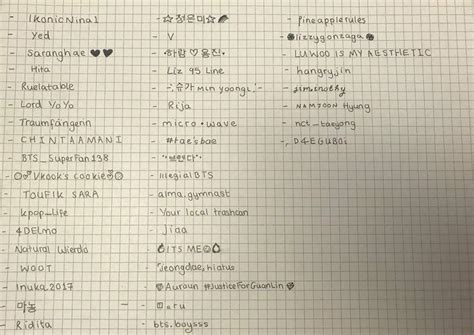 - IkonicNina1
- Yed
- Saranghae ♥♥
- Hita
- Ruelatable
- Lord YoYo
- Traumfängerin
- CHINTAAMANI
- BTS_SuperFan138
- Vkook's cookie
- TOUFIK SARA
- kpop_life
- 4DElmo
- Natural Wierdo
- WOOT
- Inuka.2017
- 마농
- Ridita
- ☆정은미☆
- V
- 하람♡용진
- Liz 95 Line
- 슈가 Min Yoongi
- Rija
- micro•wave
- #tae'sbae
- "브렌다"
- IllegialBTS
- alma.gymnast
- Your local trashcan
- Jiaa
- ITS ME
- jeongdae.hiatus
- Auraun #JusticeForGuanLin
- aru
- bts.boysss
- pineapplerules
- lizzygonzaga
- LUWOO IS MY AESTHETIC
- hangryjin
- jimtnothy
- NAMJOON Hyung
- nct_taeyong
- D4EGUB0i